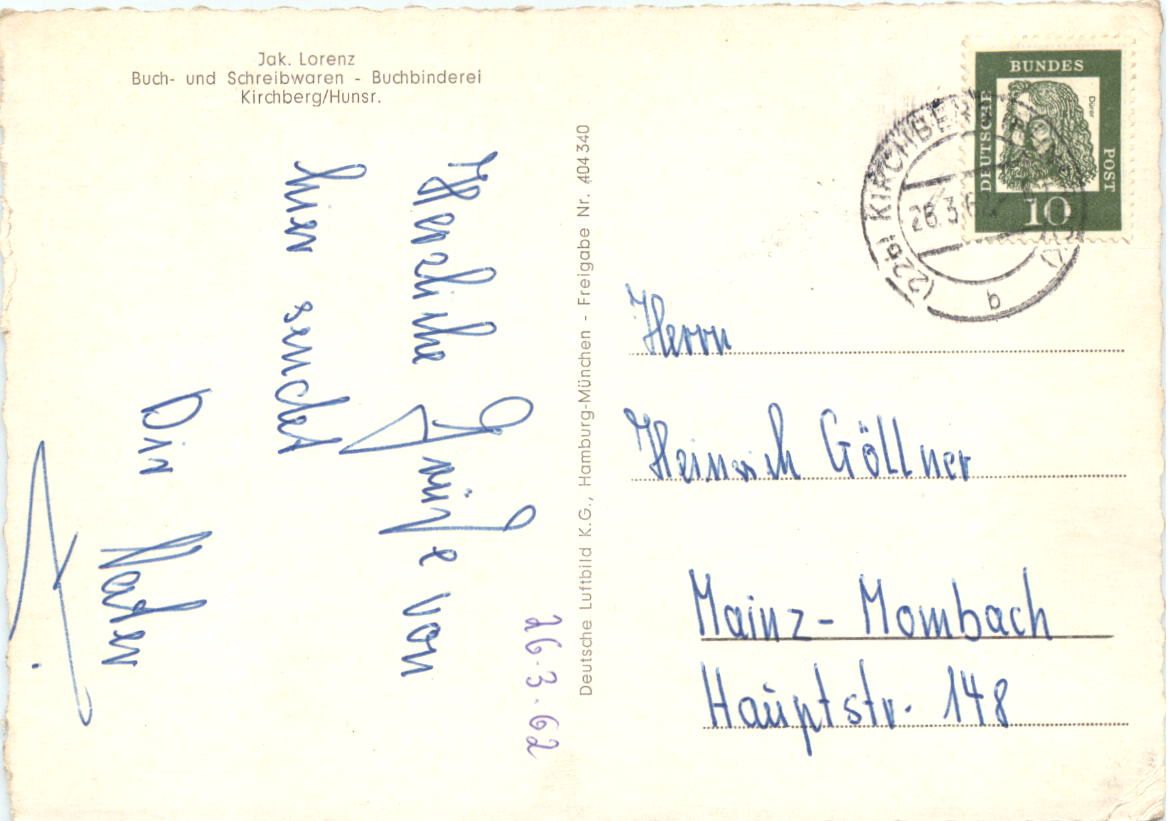 Jak. Lorenz
Buch- und Schreibwaren - Buchbinderei
Kirchberg/Hunsr.
Herzliche Grüße von
hier sendet
Dir
26.3.62
Deutsche Luftbild K.G., Hamburg-München - Freigabe Nr. 404 340
DEUTSCHE
BUNDES
POST
Dürer
10
(22b) KIRCHBERG
26.3.62
b
Herrn
Heinrich Göllner
Mainz-Mombach
Hauptstr. 148